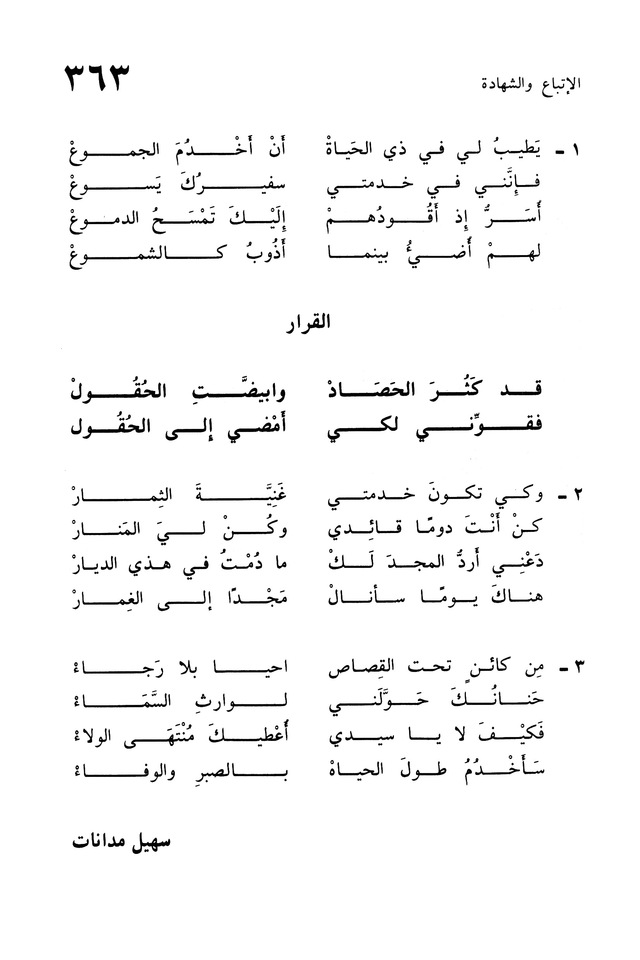 الإتباع والشهادة ٣٦٣
١ - يَطيبُ لي في ذي الحَياةْ أَنْ أَخْدُمَ الجموعْ
فإنَّني في خدمتي سفيرُكَ يَسوعْ
أَسَرُّ إذ أَقُودُهمْ إلَيْكَ تَمْسَحُ الدموعْ
لهمْ أضيُّ بينما أَذُوبُ كالشموعْ
القرار
قد كَثُرَ الحَصَادْ وابيضَّتِ الحُقُولْ
فقوِّني لكي أمْضي إلى الحُقُول
٢ - وكي تكونَ خدمتي غَنِيَّةَ الثِمارْ
كنْ أنْتَ دومًا قائِدي وكُنْ ليَ المَنارْ
دَعْني أردُّ المجدَ لَكْ ما دُمْتُ في هذي الديارْ
هناكَ يومًا سأنالْ مَجْدًا إلى الغِمارْ
٣ - مِن كائنٍ تحت القِصاص احيا بلا رَجاءْ
حَنانُكَ حَوَّلَني لوارثِ السَّمَاءْ
فَكَيْفَ لا يا سيدي أُعْطيكَ مُنْتَهَى الولاءْ
سَأخْدُمُ طولَ الحياهْ بالصبرِ والوفاءْ
سهيل مدانات